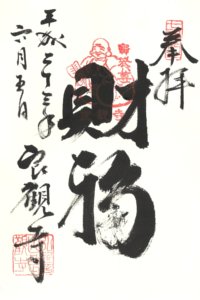 奉拝
財福
平成二十三年
六月五日
良観寺